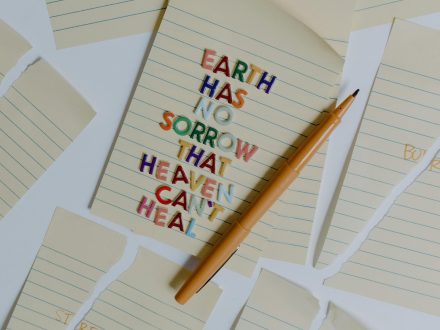 EARTH
HAS
NO
SORROW
THAT
HEAVEN
CAN'T
HEAL